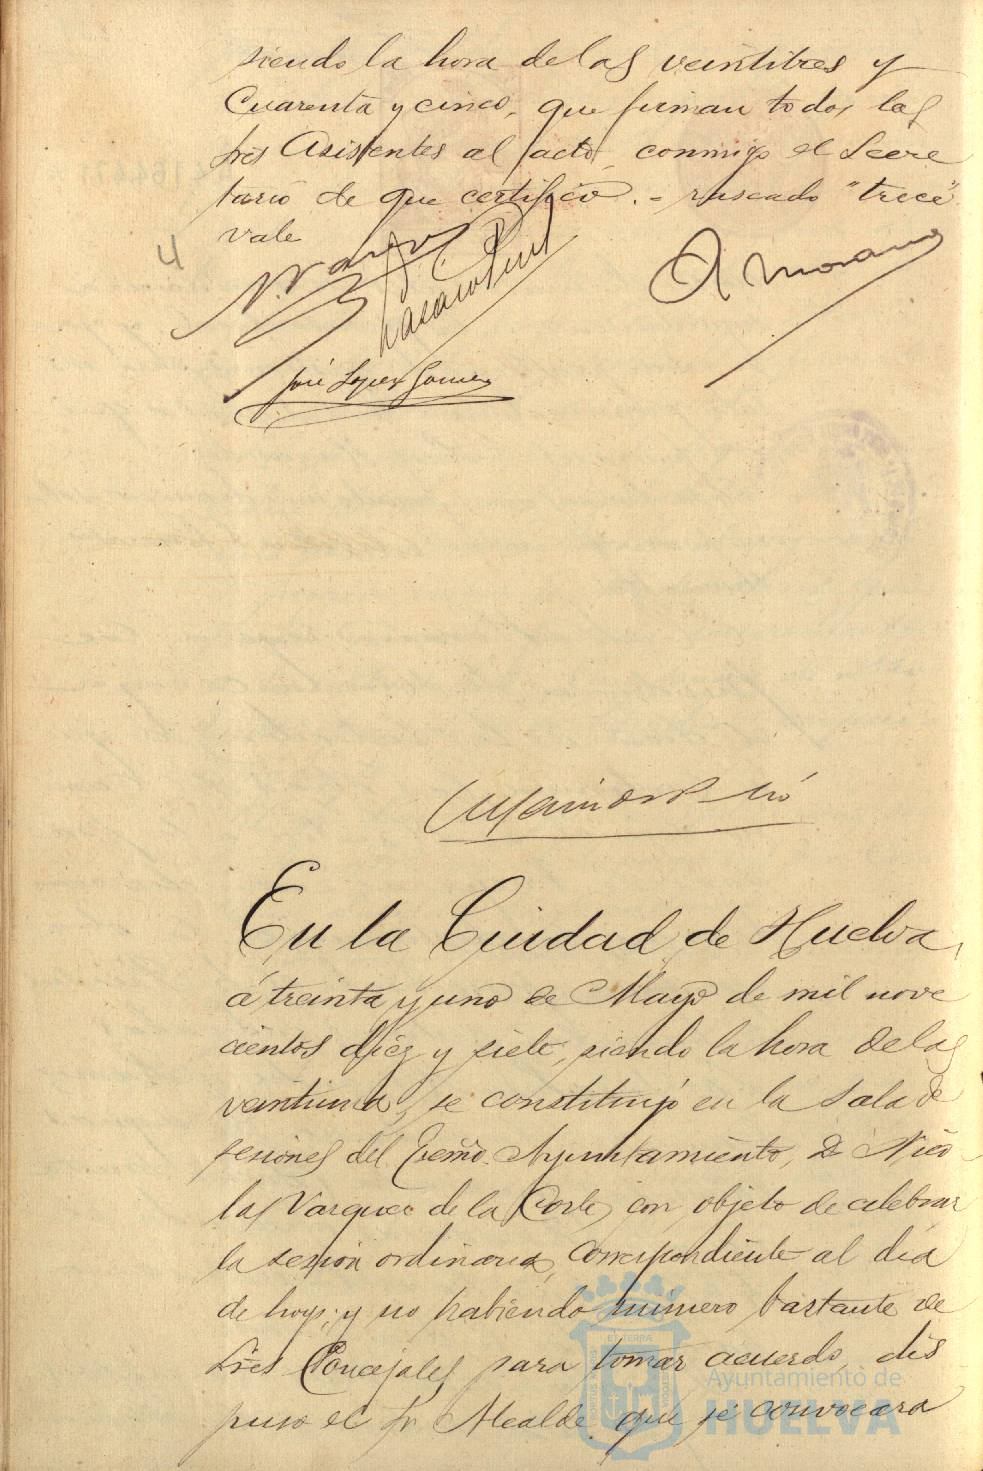 siendo la hora de las veintitres y
Cuarenta y cinco, que firman todos los
Sres Asistentes al acto, conmigo el Secre
tario de que certifico. - rascado "trece"
vale
4
N. Vazquez
A Morano
José Lopez Gomez
En la Ciudad de Huelva,
á treinta y uno de Mayo de mil nove
cientos diez y siete, siendo la hora de las
veintiuna, se constituyó en la Sala de
sesiones del Excmo. Ayuntamiento, D. Nico
las Vazquez de la Corte, con objeto de celebrar
la sesión ordinaria, correspondiente al dia
de hoy; y no habiendo número bastante de
Sres Concejales para tomar acuerdo, dis
puso el Sr Alcalde que se convocara
Ayuntamiento de
HUELVA